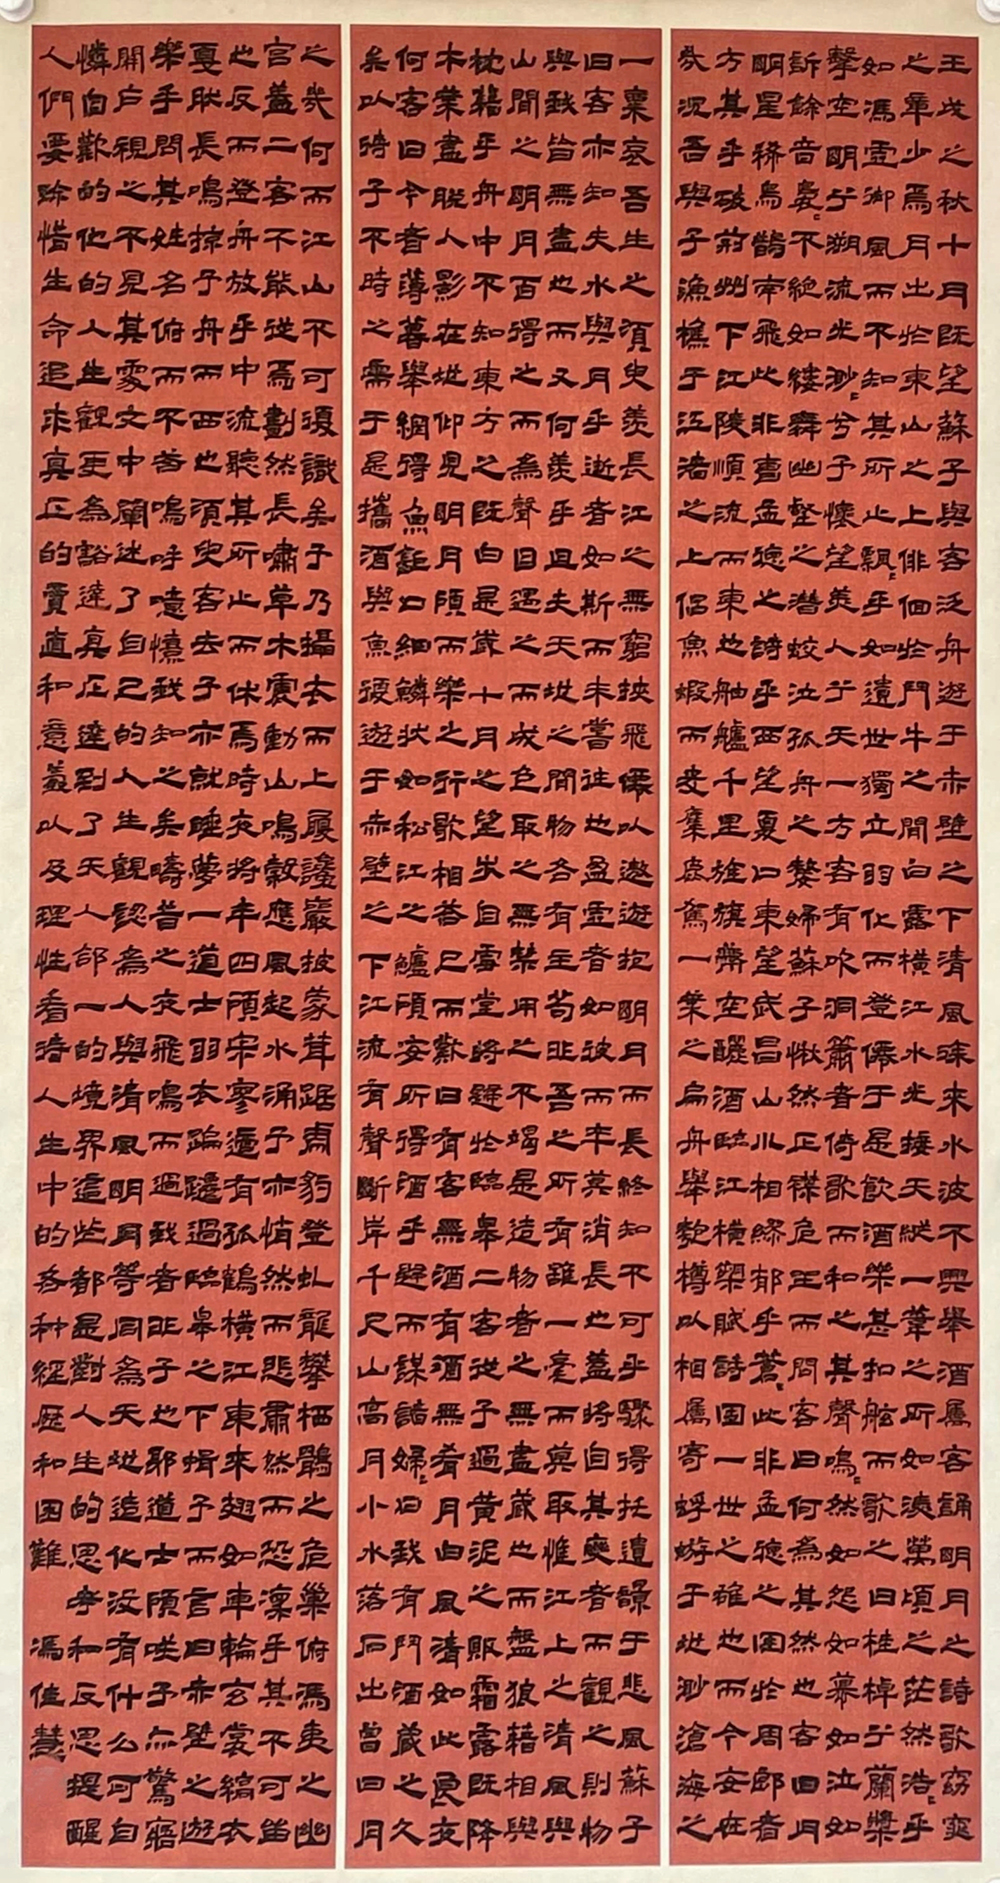 王戌之秋十月既望蘇子與客泛舟遊于赤壁之下清風徐來水波不興舉酒屬客誦明月之詩歌窈窕
之章少焉月出於東山之上徘徊於鬥牛之間白露橫江水光接天縱一葦之所如淩萬頃之茫然浩〻乎
如馮虛御風而不知其所止飄〻乎如遺世獨立羽化而登僊于是飲酒樂甚扣舷而歌之曰桂棹兮蘭槳
擊空明兮溯流光渺〻兮予懷望美人兮天一方客有吹洞簫者倚歌而和之其聲嗚〻然如怨如慕如泣如
訴餘音裊〻不絕如縷舞幽壑之潛蛟泣孤舟之嫠婦蘇子愀然正襟危坐而問客曰何為其然也客曰月
明星稀烏鵲南飛此非曹孟德之詩乎西望夏口東望武昌山川相繆郁乎蒼〻此非孟德之困於周郎者
方其乎破荊州下江陵順流而東也舳艫千里旌旗蔽空釃酒臨江橫槊賦詩固一世之雄也而今安在
哉況吾與子漁樵于江渚之上侶魚蝦而友麋鹿駕一葉之扁舟舉匏樽以相屬寄蜉蝣于地渺滄海之
一粟哀吾生之須臾羨長江之無窮挾飛僊以遨遊抱明月而長終知不可乎驟得托遺響于悲風蘇子
曰客亦知夫水與月乎逝者如斯而未嘗往也盈虛者如彼而卒莫消長也蓋將自其變者而觀之則物
與我皆無盡也而又何羨乎且夫天地之間物各有主苟非吾之所有雖一毫而莫取惟江上之清風與
山間之明月百得之而為聲目遇之而成色取之無禁用之不竭是造物者之無盡藏也而盤狼藉相與
枕藉乎舟中不知東方之既白是歲十月之望步自雪堂將歸於臨皋二客從予過黃泥之阪霜露既降
木葉盡脫人影在地仰見明月顧而樂之行歌相答已而歎曰有客無酒有酒無肴月白風清如此良夜
何客曰今者薄暮舉網得魚巨口細鱗狀如松江之鱸顧安所得酒乎歸而謀諸婦〻曰我有鬥酒藏之久
矣以待子不時之需于是攜酒與魚復遊于赤壁之下江流有聲斷岸千尺山高月小水落石出曾日月
之幾何而江山不可復識矣予乃攝衣而上履巉巖披蒙茸踞虎豹登虬龍攀栖鶻之危巢俯馮夷之幽
宮蓋二客不能從焉劃然長嘯草木震動山鳴穀應風起水涌予亦悄然而悲肅然而恐凜乎其不可留
也反而登舟放乎中流聽其所止而休焉時夜將半四顧寂寥適有孤鶴橫江東來翅如車輪玄裳縞衣
戛然長鳴掠予舟而西也須臾客去予亦就睡夢一道士羽衣蹁躚過臨皋之下揖予而言曰赤壁之遊
樂乎問其姓名俯而不答嗚呼噫嘻我知之矣疇昔之夜飛鳴而過我者非子也耶道士顧笑予亦驚寤
開戶視之不見其處文中闡述了自己的人生觀認為人與清風明月等同為天地造化沒有什么可自
憐自歎的他的人生觀更為豁達真正達到了天人合一的境界這些都是對人生的思考和反思提醒
人們要珍惜生命追求真正的價值和意義以及理性看待人生中的各種經歷和困難 馮佳慧